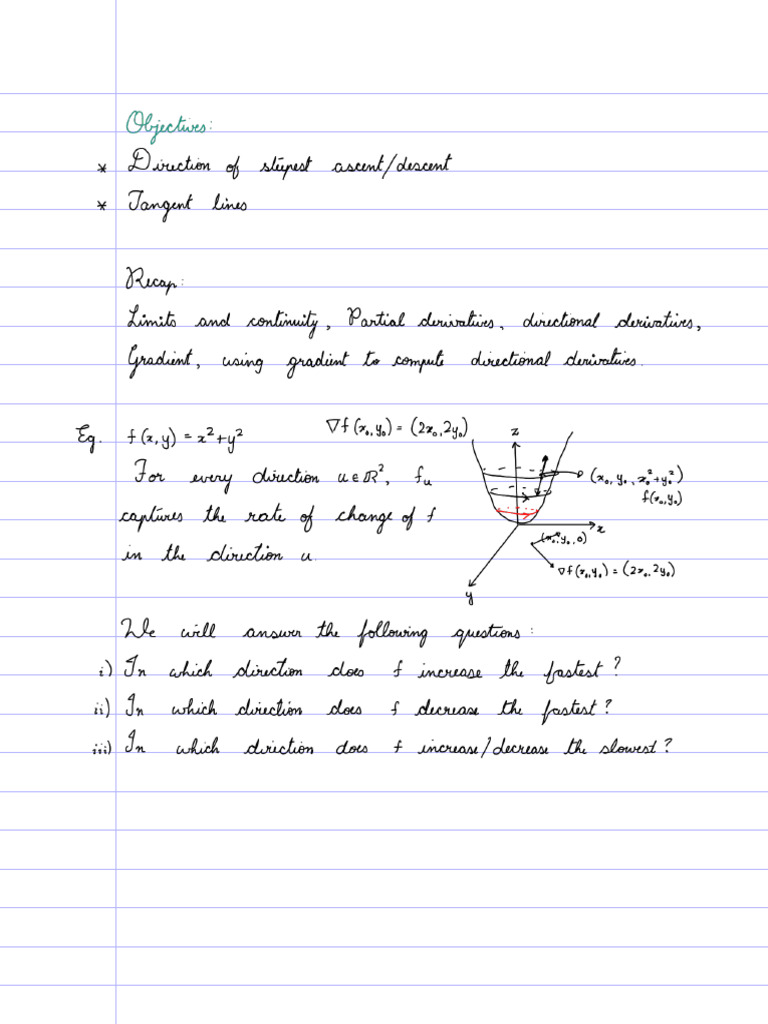 Objectives:
* Direction of steepest ascent/descent
* Tangent lines
Recap:
Limits and continuity, Partial derivatives, directional derivatives,
Gradient, using gradient to compute directional derivatives.
Eg. f(x,y) = x²+y² ∇f(x₀,y₀) = (2x₀,2y₀)
For every direction u∈ℝ², fᵤ
captures the rate of change of f
in the direction u.
z
(x₀, y₀, x₀²+y₀²)
f(x₀,y₀)
x
(x₀,y₀,0)
∇f(x₀,y₀) = (2x₀,2y₀)
y
We will answer the following questions:
i) In which direction does f increase the fastest?
ii) In which direction does f decrease the fastest?
iii) In which direction does f increase/decrease the slowest?